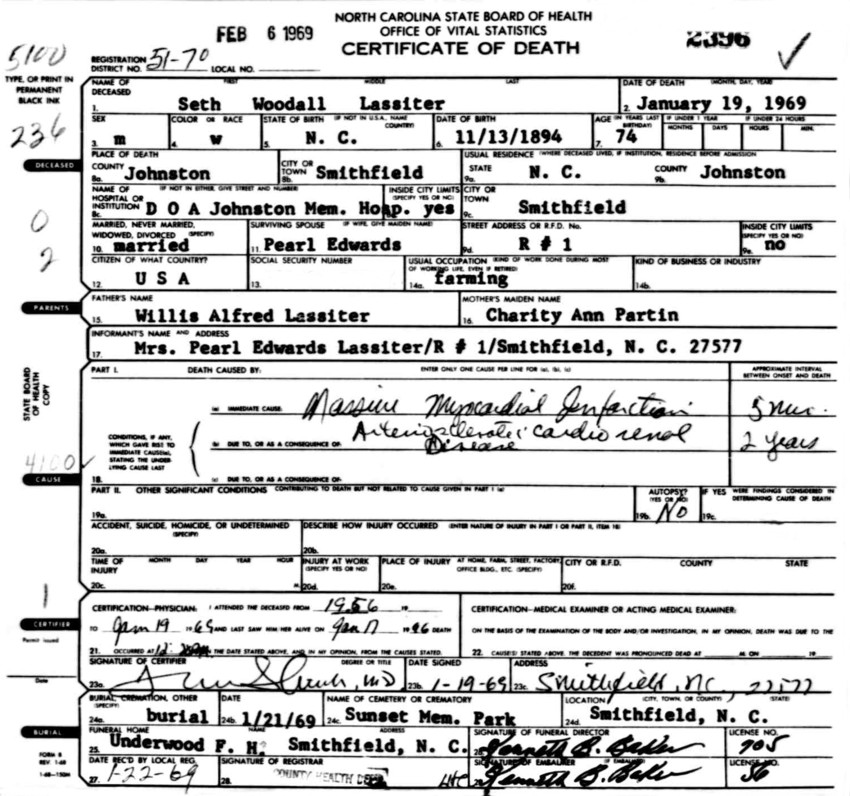 NORTH CAROLINA STATE BOARD OF HEALTH
OFFICE OF VITAL STATISTICS
CERTIFICATE OF DEATH
FEB 6 1969
2396
5100
REGISTRATION DISTRICT NO. 51-70 LOCAL NO.
TYPE, OR PRINT IN
PERMANENT
BLACK INK
236
DECEASED
NAME OF DECEASED FIRST MIDDLE LAST
1. Seth Woodall Lassiter
DATE OF DEATH (MONTH, DAY, YEAR)
2. January 19, 1969
SEX
3. m
COLOR OR RACE
4. w
STATE OF BIRTH (IF NOT IN U.S.A., NAME COUNTRY)
5. N. C.
DATE OF BIRTH
6. 11/13/1894
AGE (IN YEARS LAST BIRTHDAY)
7. 74
IF UNDER 1 YEAR
MONTHS DAYS
IF UNDER 24 HOURS
HOURS MIN.
PLACE OF DEATH
COUNTY
8a. Johnston
CITY OR TOWN
8b. Smithfield
USUAL RESIDENCE (WHERE DECEASED LIVED, IF INSTITUTION, RESIDENCE BEFORE ADMISSION
STATE
9a. N. C.
COUNTY
9b. Johnston
NAME OF HOSPITAL OR INSTITUTION (IF NOT IN EITHER, GIVE STREET AND NUMBER)
8c. D O A Johnston Mem. Hosp.
INSIDE CITY LIMITS (SPECIFY YES OR NO)
yes
CITY OR TOWN
9c. Smithfield
0
2
MARRIED, NEVER MARRIED, WIDOWED, DIVORCED (SPECIFY)
10. married
SURVIVING SPOUSE (IF WIFE, GIVE MAIDEN NAME)
11. Pearl Edwards
STREET ADDRESS OR R.F.D. No.
9d. R # 1
INSIDE CITY LIMITS (SPECIFY YES OR NO)
9e. no
CITIZEN OF WHAT COUNTRY?
12. U S A
SOCIAL SECURITY NUMBER
13.
USUAL OCCUPATION (KIND OF WORK DONE DURING MOST OF WORKING LIFE, EVEN IF RETIRED)
14a. farming
KIND OF BUSINESS OR INDUSTRY
14b.
PARENTS
FATHER'S NAME
15. Willis Alfred Lassiter
MOTHER'S MAIDEN NAME
16. Charity Ann Partin
INFORMANT'S NAME AND ADDRESS
17. Mrs. Pearl Edwards Lassiter/R # 1/Smithfield, N. C. 27577
STATE BOARD
OF HEALTH
COPY
PART I. DEATH CAUSED BY: ENTER ONLY ONE CAUSE PER LINE FOR (a), (b), (c)
APPROXIMATE INTERVAL BETWEEN ONSET AND DEATH
(a) IMMEDIATE CAUSE: Massive Myocardial Infarction 5 Min.
CONDITIONS, IF ANY, WHICH GAVE RISE TO IMMEDIATE CAUSE(a), STATING THE UNDERLYING CAUSE LAST
(b) DUE TO, OR AS A CONSEQUENCE OF: Arteriosclerotic cardio renal Disease 2 years
(c) DUE TO, OR AS A CONSEQUENCE OF:
18.
4100
CAUSE
PART II. OTHER SIGNIFICANT CONDITIONS CONTRIBUTING TO DEATH BUT NOT RELATED TO CAUSE GIVEN IN PART I (a)
19a.
AUTOPSY? (YES OR NO)
19b. NO
IF YES WERE FINDINGS CONSIDERED IN DETERMINING CAUSE OF DEATH
19c.
ACCIDENT, SUICIDE, HOMICIDE, OR UNDETERMINED (SPECIFY)
20a.
DESCRIBE HOW INJURY OCCURRED (ENTER NATURE OF INJURY IN PART I OR PART II, ITEM 18)
20b.
TIME OF INJURY MONTH DAY YEAR HOUR
20c. M.
INJURY AT WORK (SPECIFY YES OR NO)
20d.
PLACE OF INJURY AT HOME, FARM, STREET, FACTORY, OFFICE BLDG., ETC. (SPECIFY)
20e.
CITY OR R.F.D. COUNTY STATE
20f.
1
CERTIFIER
Permit issued
Date
CERTIFICATION—PHYSICIAN: I ATTENDED THE DECEASED FROM 1956 19
TO Jan 19 1969 AND LAST SAW HIM/HER ALIVE ON Jan 17 19 DEATH
21. OCCURRED AT 12: M THE DATE STATED ABOVE, AND, IN MY OPINION, FROM THE CAUSES STATED.
CERTIFICATION—MEDICAL EXAMINER OR ACTING MEDICAL EXAMINER:
ON THE BASIS OF THE EXAMINATION OF THE BODY AND/OR INVESTIGATION, IN MY OPINION, DEATH WAS DUE TO THE
22. CAUSE(S) STATED ABOVE. THE DECEDENT WAS PRONOUNCED DEAD AT M. ON 19
SIGNATURE OF CERTIFIER DEGREE OR TITLE
23a. MD
DATE SIGNED
23b. 1-19-69
ADDRESS
23c. Smithfield, NC, 27577
BURIAL, CREMATION, OTHER (SPECIFY)
24a. burial
DATE
24b. 1/21/69
NAME OF CEMETERY OR CREMATORY
24c. Sunset Mem. Park
LOCATION (CITY, TOWN, OR COUNTY) (STATE)
24d. Smithfield, N. C.
BURIAL
FUNERAL HOME NAME ADDRESS
25. Underwood F. H. Smithfield, N. C.
SIGNATURE OF FUNERAL DIRECTOR
26. Kenneth B. Baker
LICENSE NO.
705
FORM 8
REV. 1-68
1-68-150M
DATE REC'D BY LOCAL REG.
27. 1-22-69
SIGNATURE OF REGISTRAR
28. COUNTY HEALTH DEPT
SIGNATURE OF EMBALMER (IF EMBALMED)
29. Kenneth B. Baker
LICENSE NO.
56